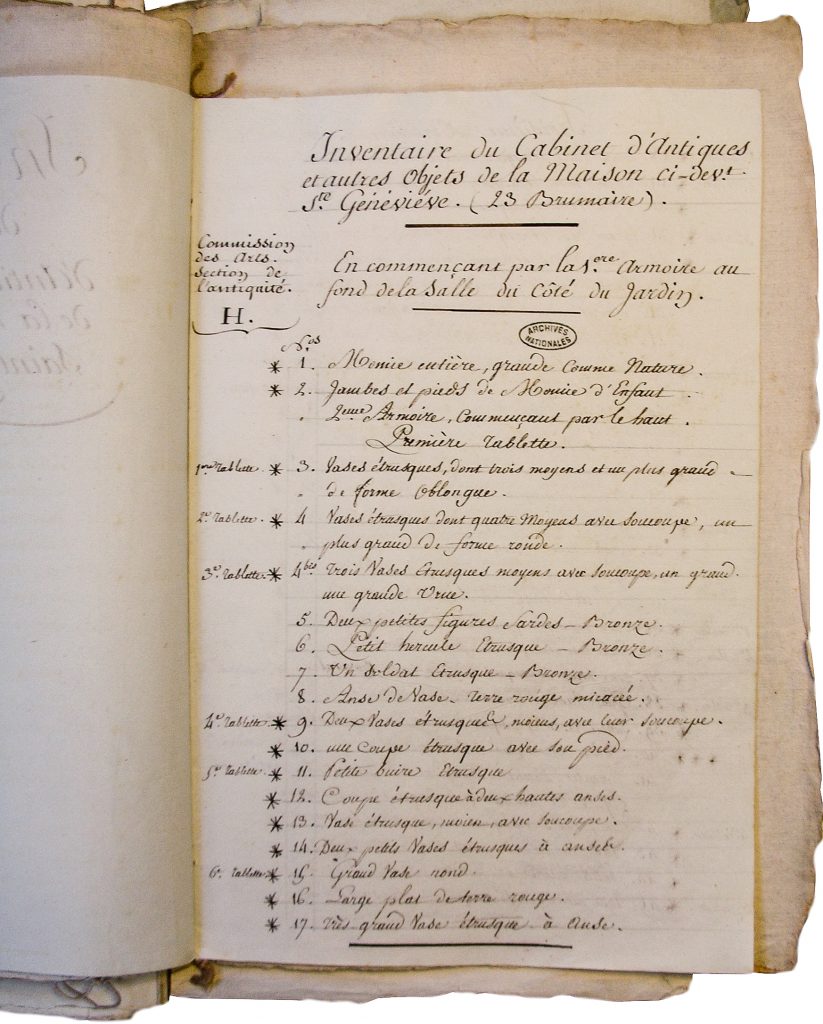 Inventaire du Cabinet d'Antiques
et autres Objets de la Maison ci-dev.t
S.te Généviéve. (23 Brumaire).
Commission
des Arts.
Section de
l'antiquité.
H.
En commençant par la 1.ere Armoire au
fond de la Salle du Côté du Jardin.
ARCHIVES
NATIONALES
N.os
* 1. Momie entière, grande Comme Nature.
* 2. Jambes et pieds de Momie d'Enfant.
2.eme Armoire, Commençant par le haut.
Première Tablette.
1.ere Tablette * 3. Vases étrusques, dont trois moyens et un plus grand
de forme Oblongue.
2.e Tablette. * 4 Vases étrusques dont quatre Moyens avec Soucoupe, un
plus grand de forme ronde.
3.e Tablette. * 4bis Trois Vases Etrusques moyens avec Soucoupe, un grand.
une grande Urne.
5. Deux petites figures Sardes - Bronze.
6. Petit hercule Etrusque - Bronze.
7. Un Soldat Etrusque - Bronze.
8. Anse de Vase - Terre rouge micacée.
4.e Tablette. * 9. Deux Vases étrusques, moiens, avec leur Soucoupe.
* 10. une Coupe étrusque avec son pied.
5.e Tablette. * 11. Petite buire Etrusque
* 12. Coupe étrusque à deux hautes anses.
* 13. Vase étrusque, moien, avec Soucoupe.
* 14. Deux petits Vases étrusques à anses.
6.e Tablette * 15. Grand Vase rond.
* 16. Large plat de terre rouge.
* 17. Très-grand Vase étrusque à Anse.